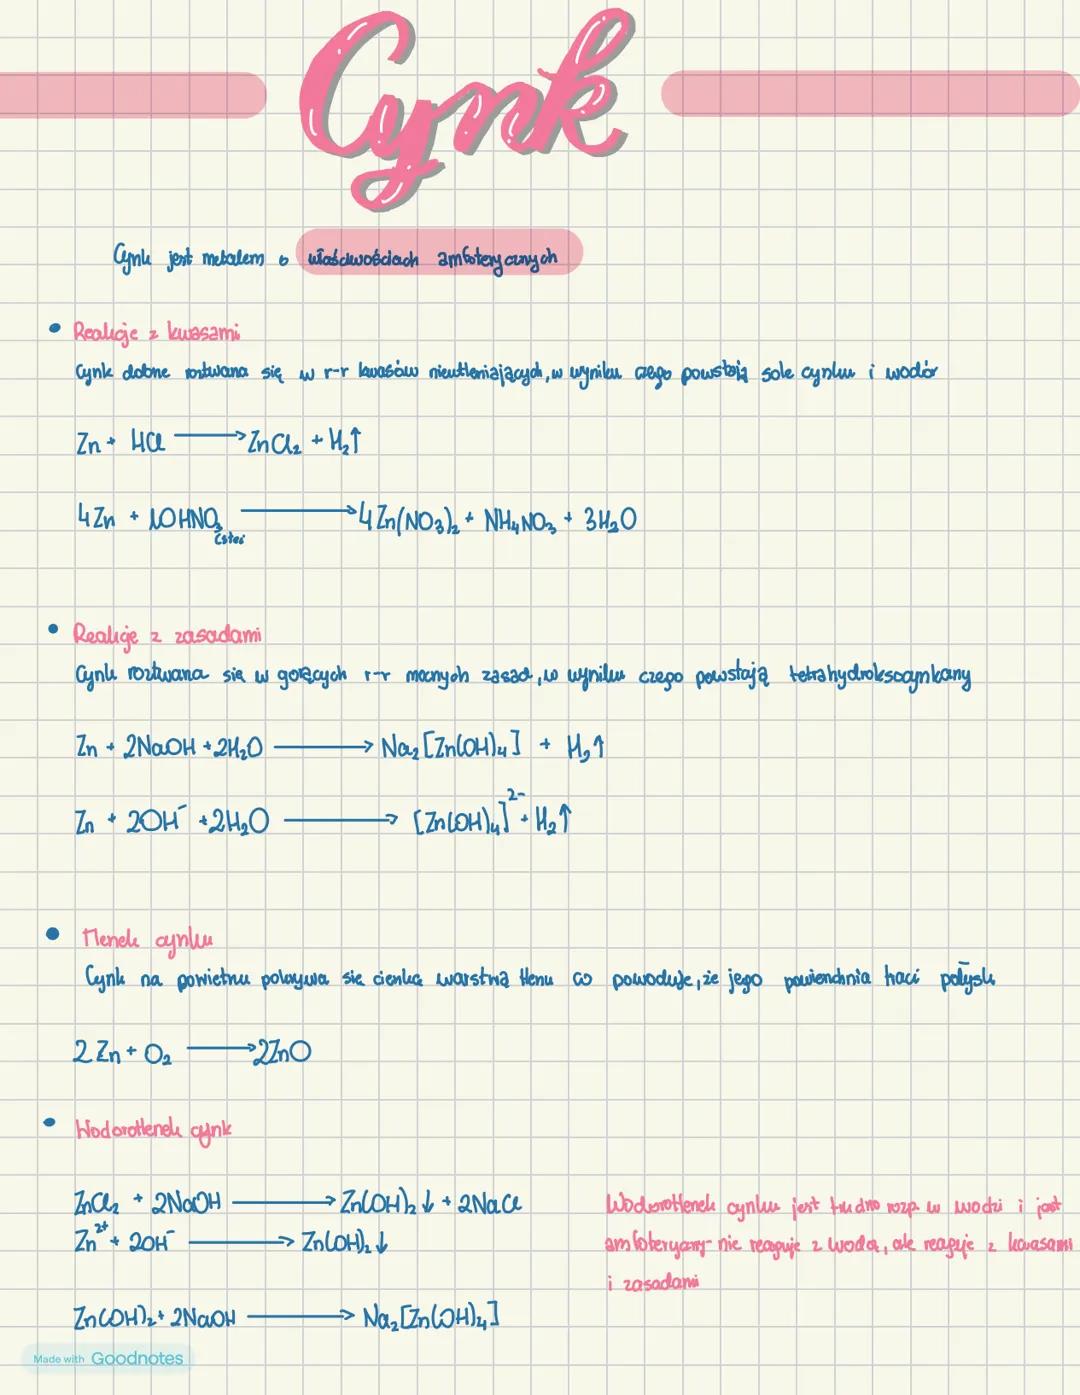 Cynk
Cynk jest metalem o właściwościach amfoterycznych
• Reakcje z kwasami
Cynk dobrze roztwarza się w r-r kwasów nieutleniających, w wyniku czego powstają sole cynku i wodór
Zn + HCl → ZnCl₂ + H₂↑
4Zn + 10HNO₃ → 4Zn(NO₃)₂ + NH₄NO₃ + 3H₂O
• Reakcje z zasadami
Cynk roztwarza się w gorących r-r mocnych zasad, w wyniku czego powstają tetrahydroksocynkany
Zn + 2NaOH + 2H₂O → Na₂[Zn(OH)₄] + H₂↑
Zn + 2OH⁻ + 2H₂O → [Zn(OH)₄]²⁻ + H₂↑
• Tlenek cynku
Cynk na powietrzu pokrywa się cienką warstwą tlenu co powoduje, że jego powierzchnia traci połysk
2Zn + O₂ → 2ZnO
• Wodorotlenek cynk
ZnCl₂ + 2NaOH → Zn(OH)₂↓ + 2NaCl
Zn²⁺ + 2OH⁻ → Zn(OH)₂↓
Zn(OH)₂ + 2NaOH → Na₂[Zn(OH)₄]
Wodorotlenek cynku jest trudno rozp. w wodzi i jest
amfoteryczny- nie reaguje z wodą, ale reaguje z kwasami
i zasadami
Made with Goodnotes